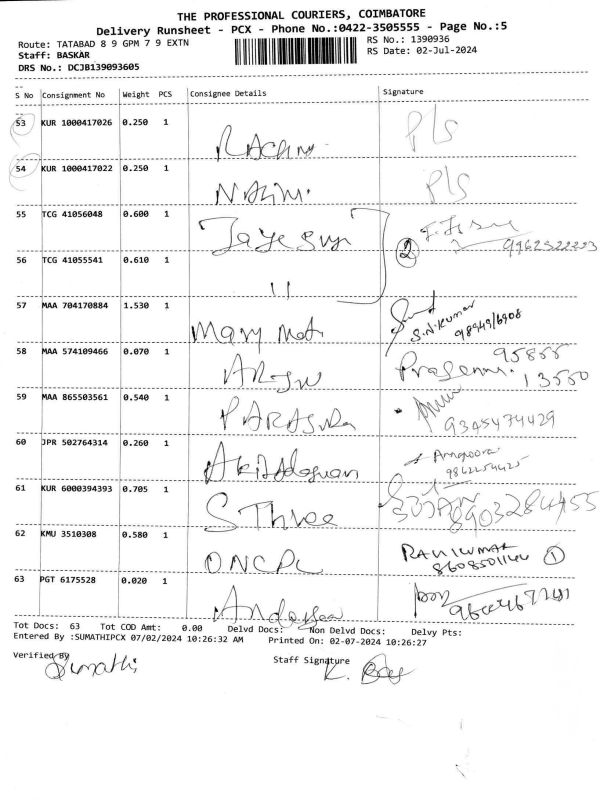 THE PROFESSIONAL COURIERS, COIMBATORE
Delivery Runsheet - PCX - Phone No.:0422-3505555 - Page No.:5
Route: TATABAD 8 9 GPM 7 9 EXTN RS No.: 1390936
Staff: BASKAR RS Date: 02-Jul-2024
DRS No.: DCJB139093605
S No Consignment No Weight PCS Consignee Details Signature
53 KUR 1000417026 0.250 1 P/s
54 KUR 1000417022 0.250 1 P/s
55 TCG 41056048 0.600 1
56 TCG 41055541 0.610 1 11 2
57 MAA 704170884 1.530 1 Mary S.N.Kumar
58 MAA 574109466 0.070 1 95855
13550
59 MAA 865503561 0.540 1 9345474429
60 JPR 502764314 0.260 1
9862254425
61 KUR 6000394393 0.705 1 S Three 8903284455
62 KMU 3510308 0.580 1 ONCPL RAVIKUMAR
8608501144 1
63 PGT 6175528 0.020 1
Tot Docs: 63 Tot COD Amt: 0.00 Delvd Docs: Non Delvd Docs: Delvy Pts:
Entered By :SUMATHIPCX 07/02/2024 10:26:32 AM Printed On: 02-07-2024 10:26:27
Verified By Staff Signature
Sumathi